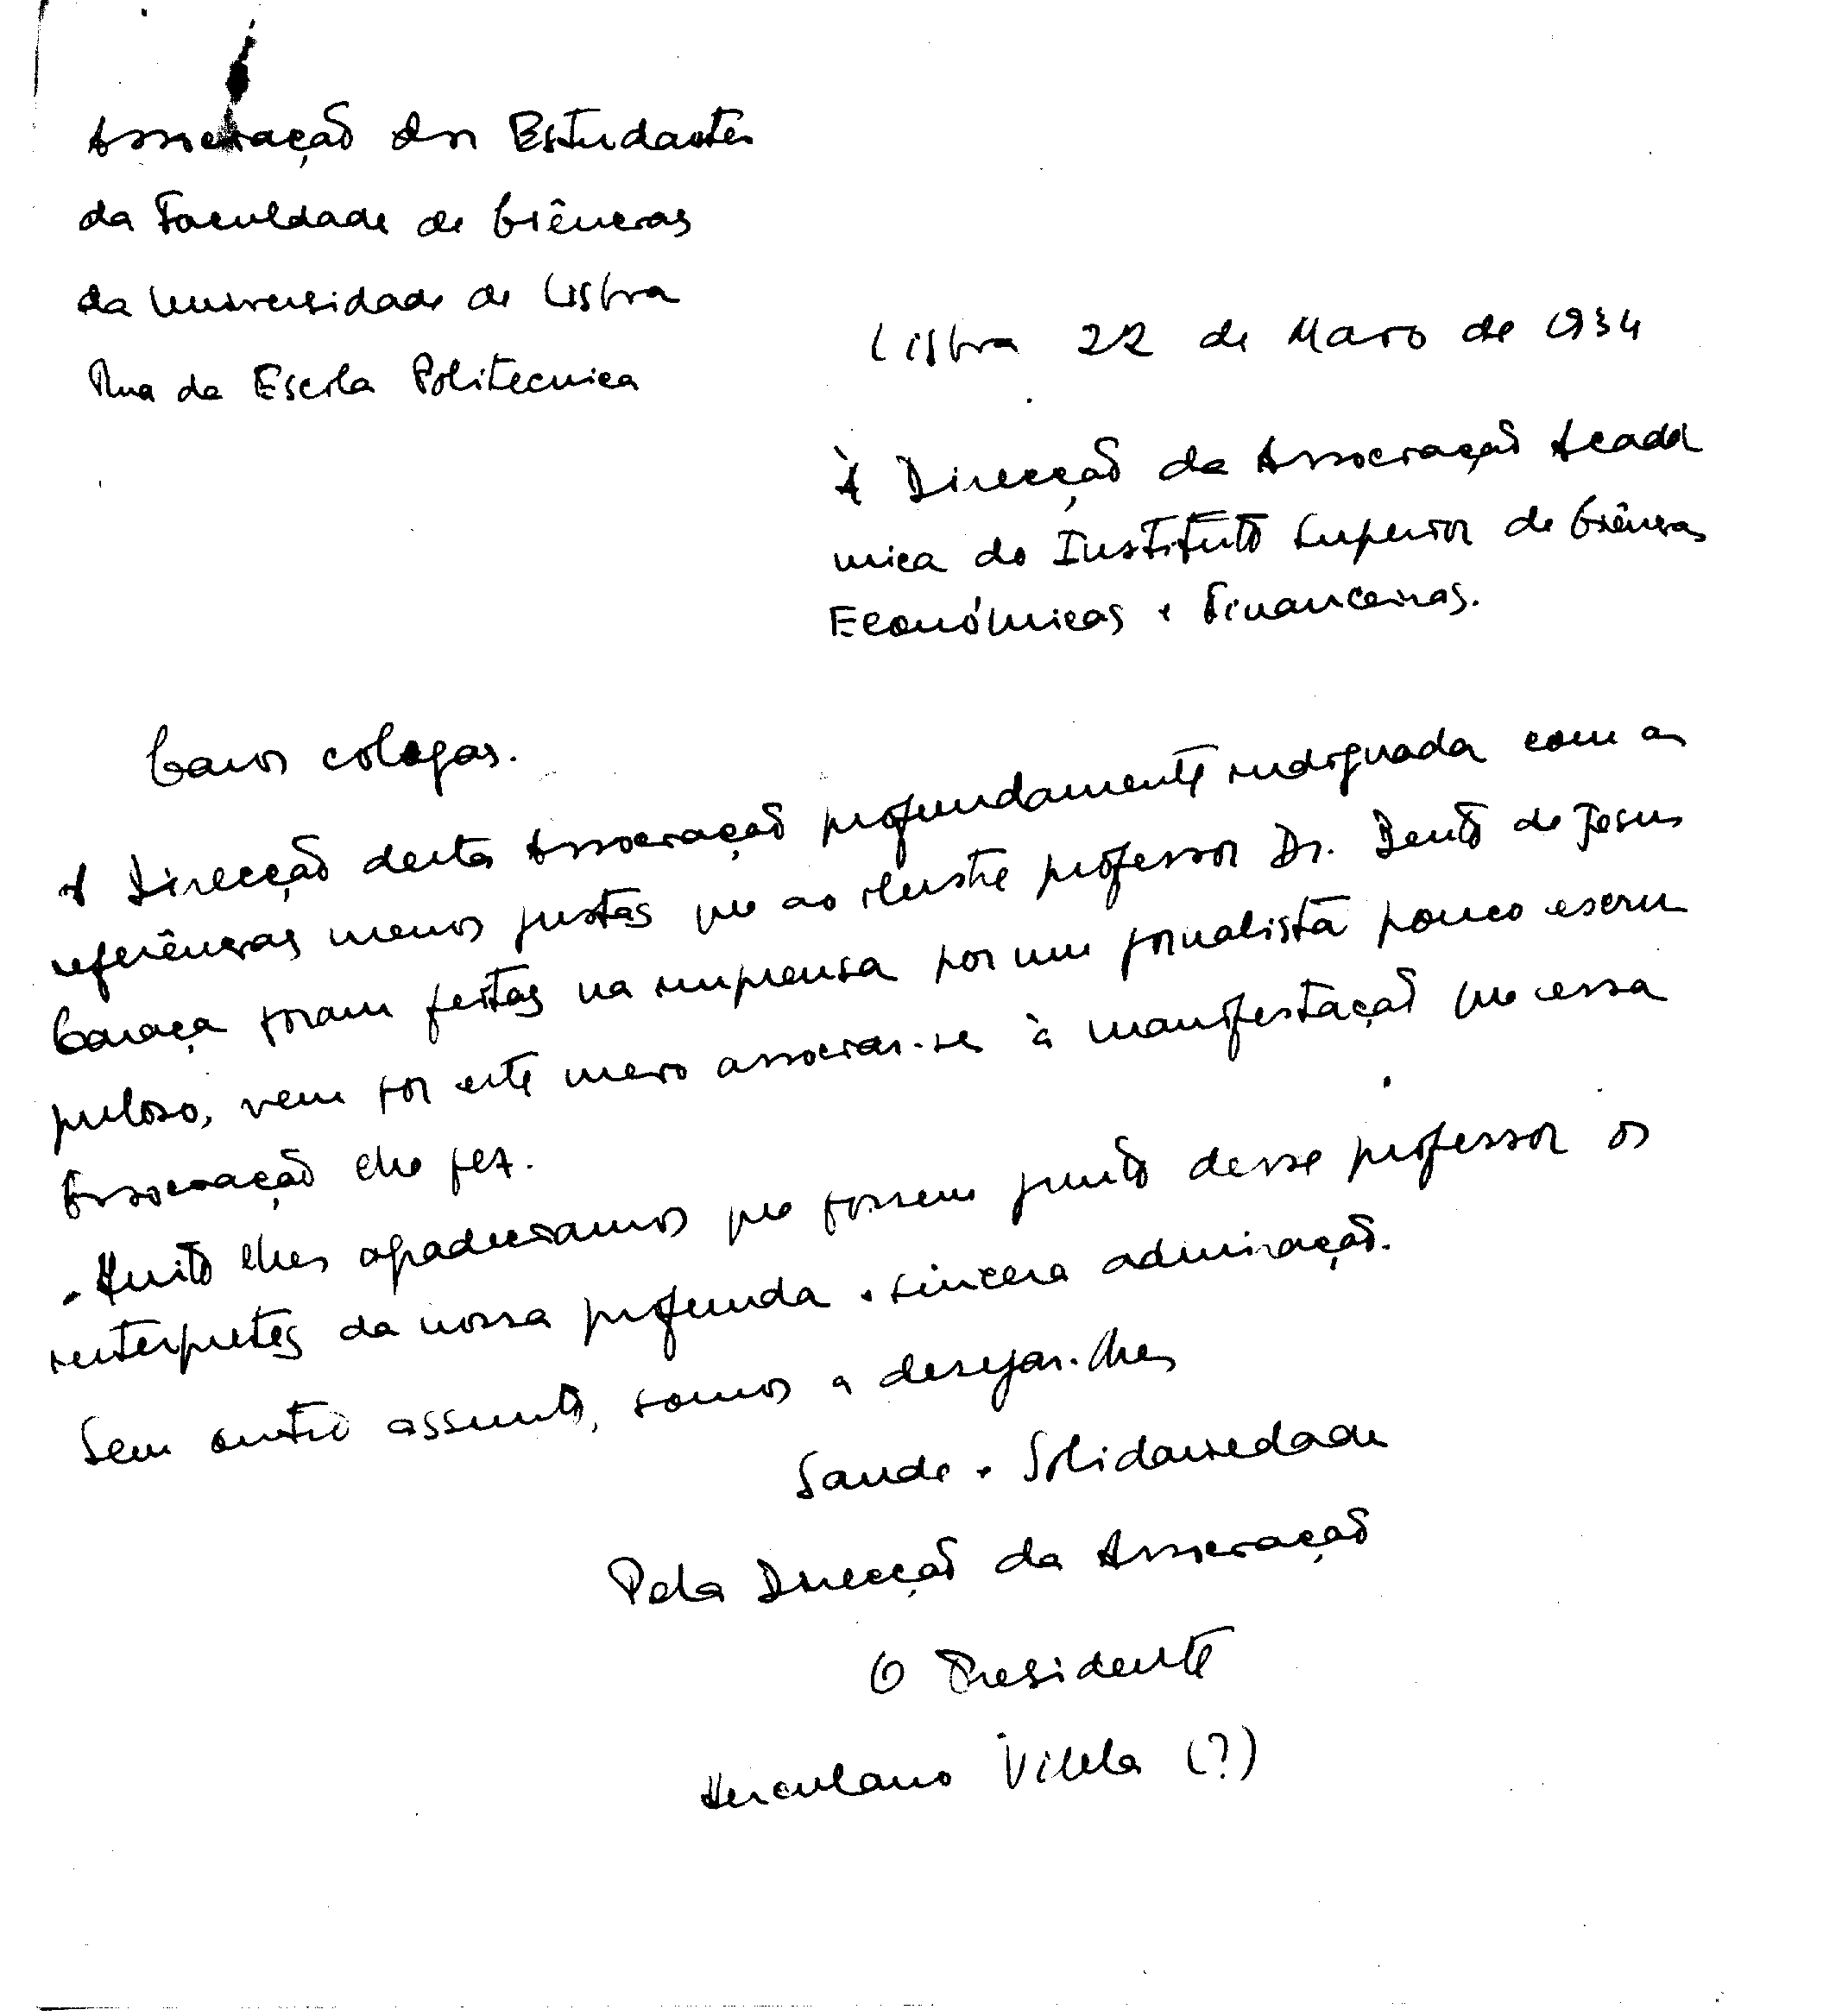 Associação dos Estudantes
da Faculdade de Ciências
da Universidade de Lisboa
Rua da Escola Politecnica
Lisboa 22 de Março de 1934
À Direcção da Associação Acadé
mica do Instituto Superior de Ciências
Económicas e Financeiras.
Caros colegas.
A Direcção desta Associação profundamente indignada com as
referências menos justas que ao ilustre professor Dr. Bento de Jesus
Caraça foram feitas na imprensa por um jornalista pouco escru
puloso, vem por este meio associar-se à manifestação que essa
Associação lhe fez.
Muito lhes agradeciamos que fossem junto desse professor os
interpretes da nossa profunda e sincera admiração.
Sem outro assunto, somos a desejar-lhes
Saude e Solidariedade
Pela Direcção da Associação
O Presidente
Herculano Vilela (?)